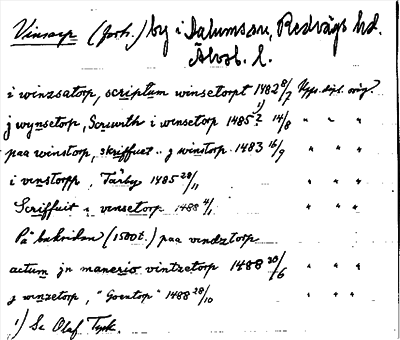 Vinsarp (Jorh.) by i Dalumsau, Redvägs hd.
Älvsb. l.
i winzsatorp, scriptum winsetorpt 1482 8/7 Upps. dipl. orig?
j wynsetorp, i winsetop 1485? 1) 14/8 " " "
paa winstorp, skriffuet .. j winstorp 1483 16/9 " " "
i vinstorpp, Tärby 1485 28/11 " " "
Scriffuit i vinsetorp 1488 4/1 " " "
På baksidan (1500t.) paa vindztorp
actum jn manerio vintzetorp 1488 20/6 " " "
j winzetorp, "Goentorp" 1488 28/10 " " "
1) Se Olaf Tysk.